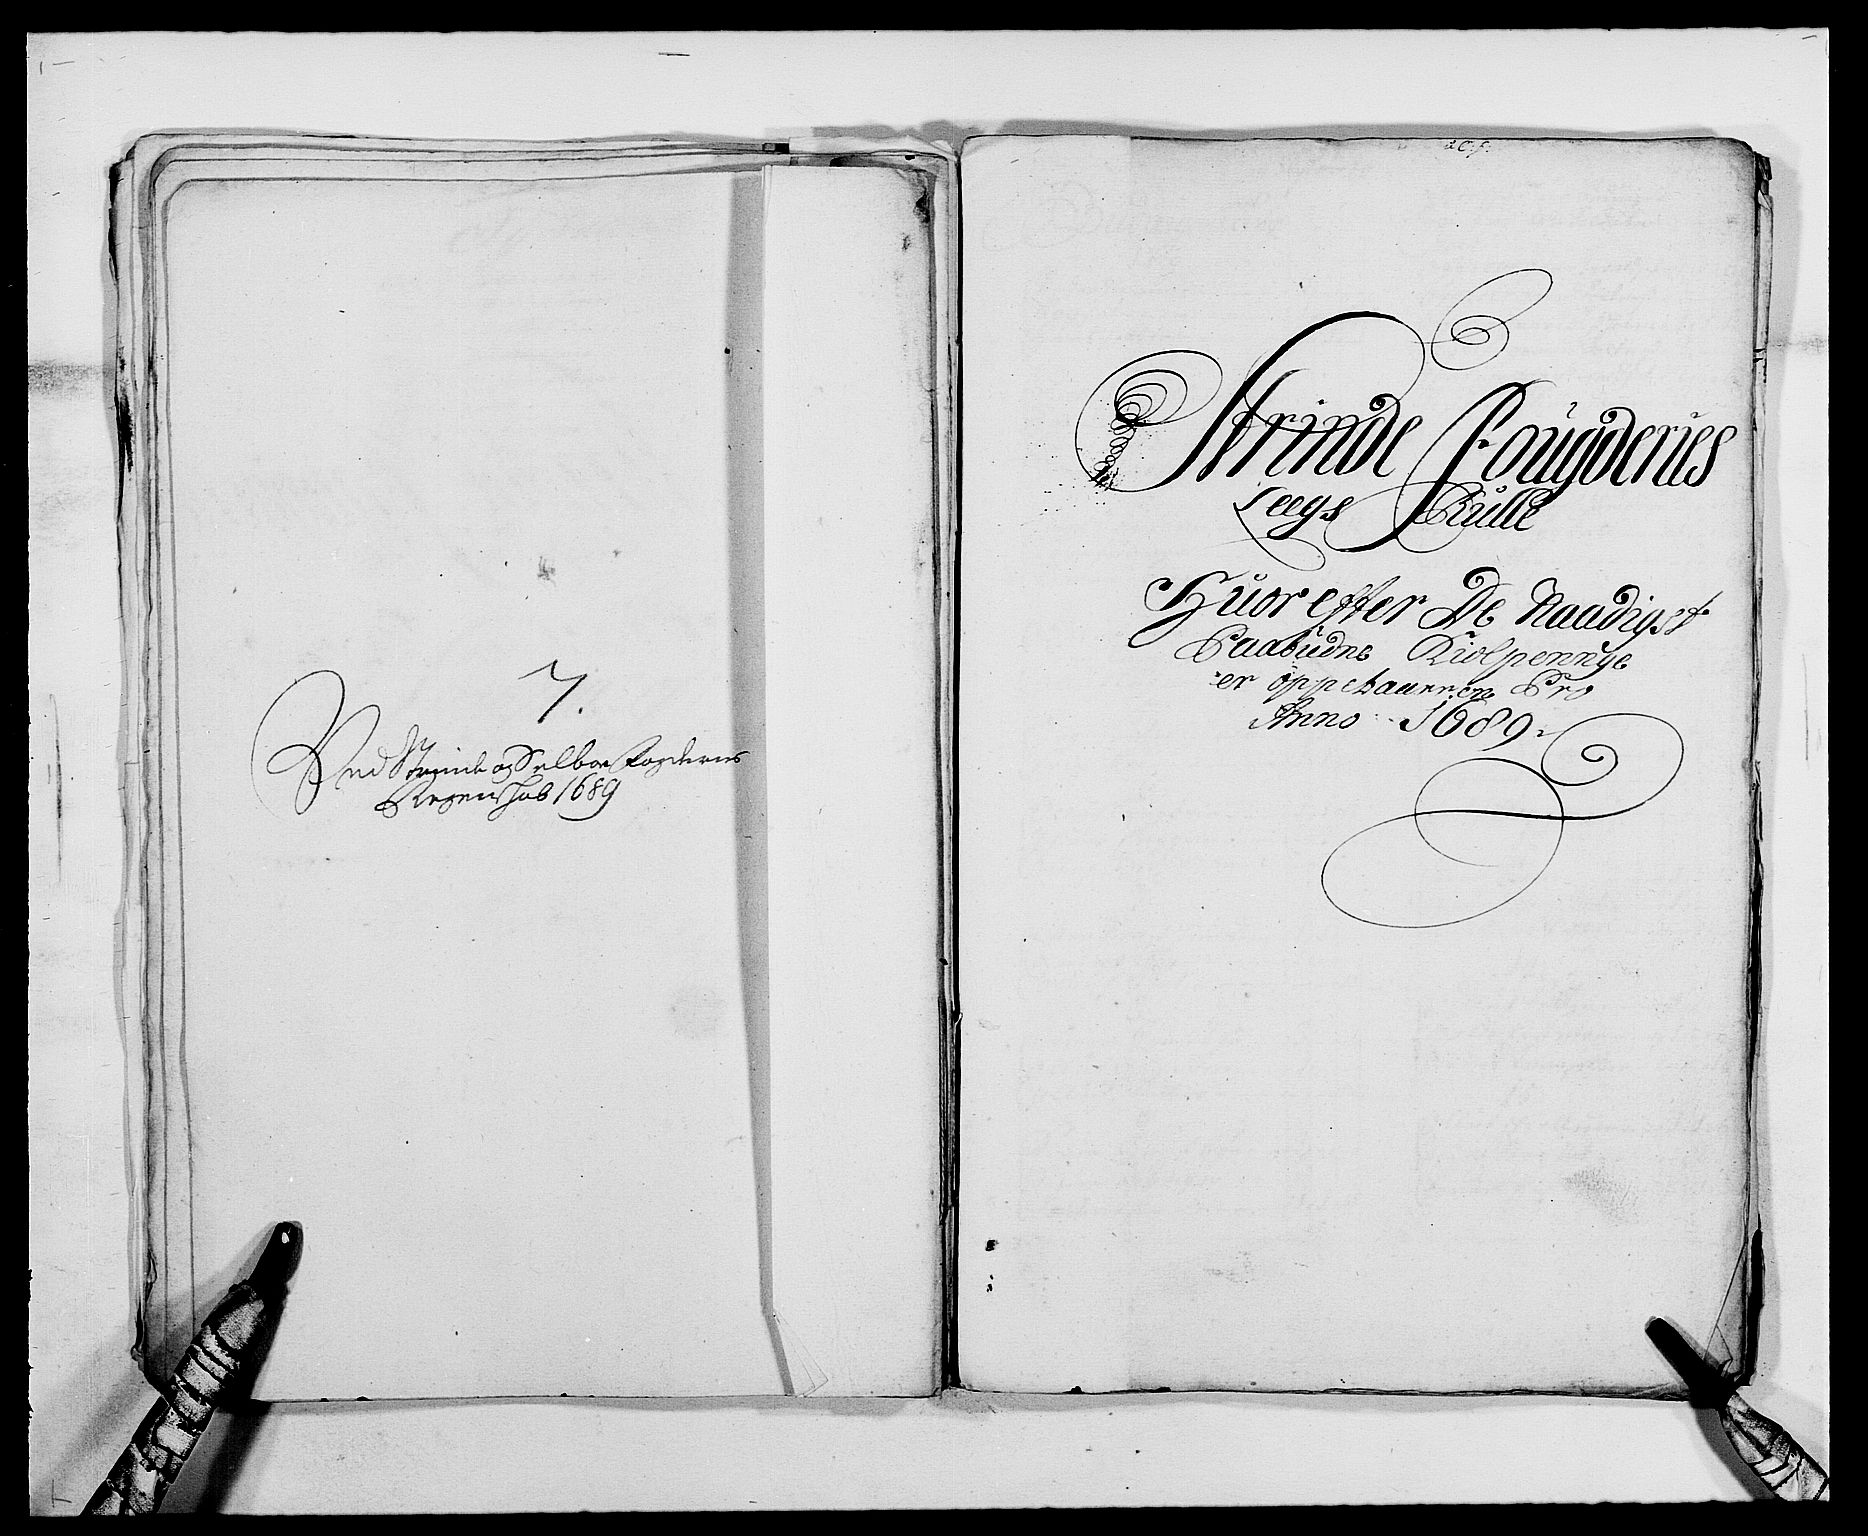 7.
Ved Strinde og Selboe Fogderies
Regenskab 1689
Strinde Fougderies
Leegs Rulle
Huor efter De Naadigst
Paabudne Kiolpennge
er oppebaarren Pro
Anno 1689.